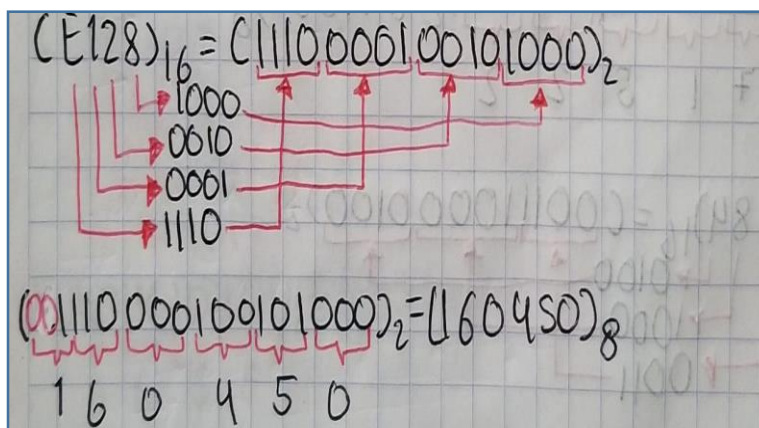 (E128)16 = (1110000100101000)2
1000
0010
0001
1110
(001110000100101000)2=(160450)8
1 6 0 4 5 0